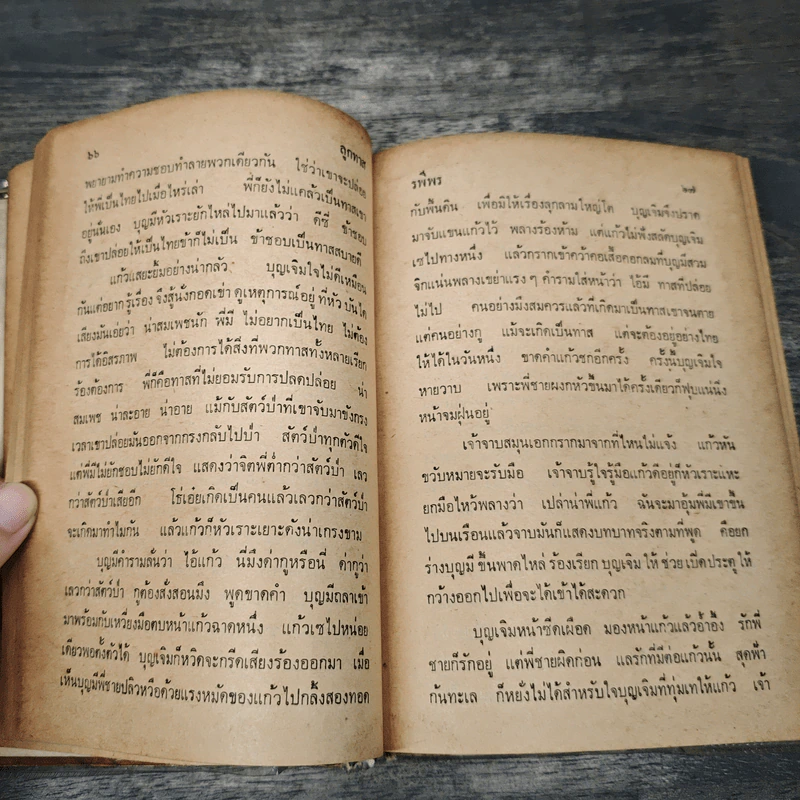 ๖๖ ลูกทาส
พยายามทำความชอบทำลายพวกเดียวกัน ใช่ว่าเขาจะปล่อย
ให้พี่เป็นไทยไปเมื่อไหร่เล่า พี่ก็ยังไม่แคล้วเป็นทาสเขา
อยู่นั่นเอง บุญมีหัวเราะยักไหล่ไปมาแล้วว่า ดีซี ข้าชอบ
ถึงเขาปล่อยให้เป็นไทยข้าก็ไม่เป็น ข้าชอบเป็นทาสสบายดี
แก้วแสยะยิ้มอย่างน่ากลัว บุญเจิมใจไม่ดีเหมือน
กันแต่อยากรู้เรื่อง จึงสู้นั่งกอดเข่า ดูเหตุการณ์อยู่ ที่หัว บันได
เสียงมันเอ่ยว่า น่าสมเพชนัก พี่มี ไม่อยากเป็นไทย ไม่ต้อง
การได้อิสรภาพ ไม่ต้องการได้สิ่งที่พวกทาสทั้งหลายเรียก
ร้องต้องการ พี่ก็คือทาสที่ไม่ยอมรับการปลดปล่อย น่า
สมเพช น่าละอาย น่าอาย แม้กับสัตว์ป่าที่เขาจับมาขังกรง
เวลาเขาปล่อยมันออกจากกรงกลับไปป่า สัตว์ป่าทุกตัวดีใจ
แต่พี่มีไม่ยักชอบไม่ยักดีใจ แสดงว่าจิตพี่ต่ำกว่าสัตว์ป่า เลว
กว่าสัตว์ป่าเสียอีก โธ่เอ๋ยเกิดเป็นคนแล้วเลวกว่าสัตว์ป่า
จะเกิดมาทำไมกัน แล้วแก้วก็หัวเราะเยาะดังน่าเกรงขาม
บุญมีคำรามลั่นว่า ไอ้แก้ว นี่มึงด่ากูหรือนี่ ด่ากูว่า
เลวกว่าสัตว์ป่า กูต้องสั่งสอนมึง พูดขาดคำ บุญมีถลาเข้า
มาพร้อมกับเหวี่ยงมือตบหน้าแก้วฉาดหนึ่ง แก้วเซไปหน่อย
เดียวพอตั้งตัวได้ บุญเจิมก็หวิดจะกรีดเสียงร้องออกมา เมื่อ
เห็นบุญมีพี่ชายปลิวหวือด้วยแรงหมัดของแก้วไปกลิ้งสองทอด
รพีพร ๖๗
กับพื้นดิน เพื่อมิให้เรื่องลุกลามใหญ่โต บุญเจิมจึงปราด
มาจับแขนแก้วไว้ พลางร้องห้าม แต่แก้วไม่ฟังสลัดบุญเจิม
เซไปทางหนึ่ง แล้วกรากเข้าคว้าคอเสื้อคอกลมที่บุญมีสวม
จิกแน่นพลางเขย่าแรง ๆ คำรามใส่หน้าว่า ไอ้มี ทาสที่ปล่อย
ไม่ไป คนอย่างมึงสมควรแล้วที่เกิดมาเป็นทาสเขาจนตาย
แต่คนอย่างกู แม้จะเกิดเป็นทาส แต่จะต้องอยู่อย่างไทย
ให้ได้ในวันหนึ่ง ขาดคำแก้วชกอีกครั้ง ครั้งนี้บุญเจิมใจ
หายวาบ เพราะพี่ชายผงกหัวขึ้นมาได้ครั้งเดียวก็ฟุบแน่นิ่ง
หน้าจมฝุ่นอยู่
เจ้าจาบสมุนเอกกรากมาจากที่ไหนไม่แจ้ง แก้วหัน
ขวับหมายจะรับมือ เจ้าจาบรู้ใจรู้มือแก้วดีอยู่ก็หัวเราะแหะ
ยกมือไหว้พลางว่า เปล่าน่าพี่แก้ว ฉันจะมาอุ้มพี่มีเขาขึ้น
ไปบนเรือนแล้วจาบมันก็แสดงบทบาทจริงตามที่พูด คือยก
ร่างบุญมี ขึ้นพาดไหล่ ร้องเรียก บุญเจิม ให้ ช่วย เปิดประตู ให้
กว้างออกไปเพื่อจะได้เข้าได้สะดวก
บุญเจิมหน้าซีดเผือด มองหน้าแก้วแล้วอ้ำอึ้ง รักพี่
ชายก็รักอยู่ แต่พี่ชายผิดก่อน แลรักที่มีต่อแก้วนั้น สุดฟ้า
กันทะเล ก็หยั่งไม่ได้สำหรับใจบุญเจิมที่ทุ่มเทให้แก้ว เจ้า